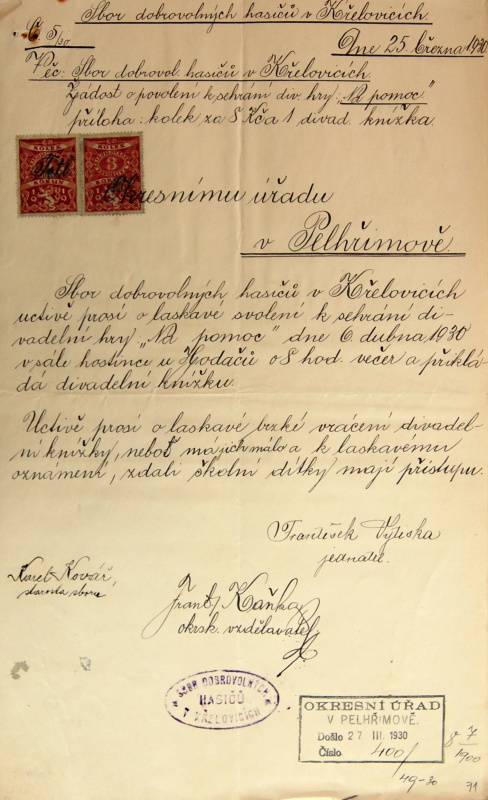 Sbor dobrovolných hasičů v Křelovicích.
Č 5/30
Dne 25. března 1930
Věc: Sbor dobrovol. hasičů v Křelovicích.
Žádost o povolení k sehrání div. hry: „Na pomoc."
příloha: kolek za 8 Kč a 1 divad. knížka.
KOLEK KOLEK
5 3
KOLKUV KOLKUV
Okresnímu úřadu
v Pelhřimově.
Sbor dobrovolných hasičů v Křelovicích
uctivě prosí o laskavé svolení k sehrání di-
vadelní hry „Na pomoc" dne 6. dubna 1930
v sále hostince u Hodačů o 8 hod. večer a přiklá-
dá divadelní knížku.
Uctivě prosí o laskavé brzké vrácení divadel-
ní knížky, neboť má jich málo a k laskavému
oznámení, zdali školní dítky mají přístupu.
František Vyleska
jednatel.
Karel Kovář,
starosta sboru
Frant. Kaňka
okrsk. vzdělavatel
SBOR DOBROVOLNÝCH
HASIČŮ
V KŘELOVICÍCH
OKRESNÍ ÚŘAD
V PELHŘIMOVĚ.
Došlo 27 III. 1930
Číslo 400/
8 7/1900
49-30
71